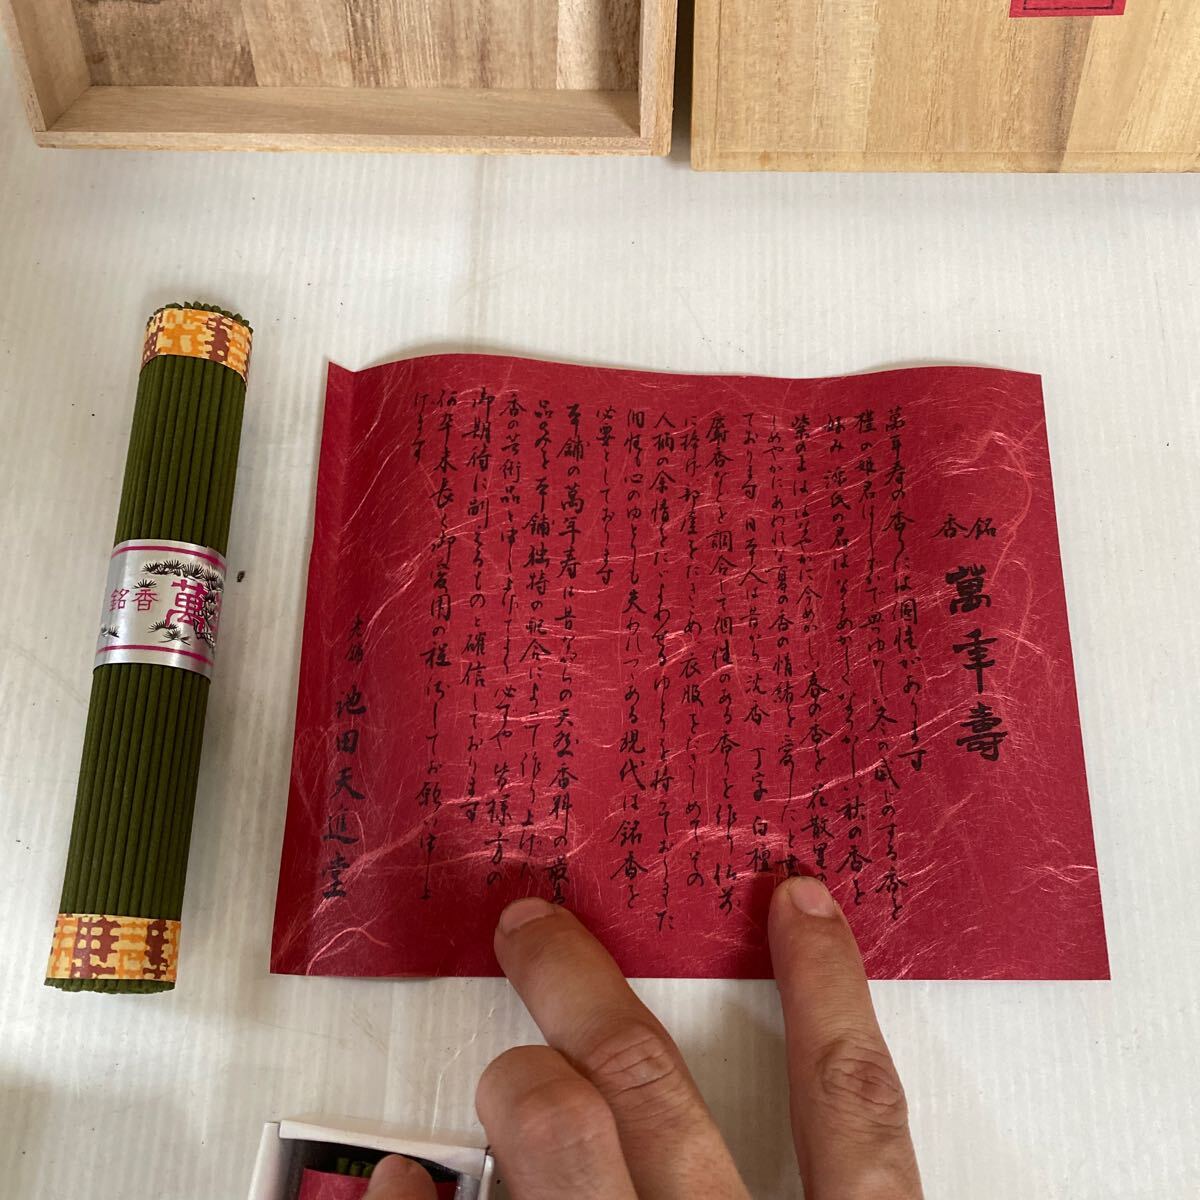 銘香
萬年壽
萬年寿の香りには個性があります
樸の姫君はしとやかで血つゆしい冬の感じのする香を
好み 源氏の君はなまめかしくなつかしい秋の香を
紫の上ははなやかに今めかしい春の香を 花散里の
しめやかにあわれな夏の香の情緒を愛したと
ております 日本人は昔から沈香 丁字 白檀
麝香などを調合して個性のある香りを作り 仏前
に捧げ 部屋をにぎわめ 衣服をたきしめてその
人柄の余情をたゞよわせるゆとりを持っておりました
個性も心のゆとりも失われつゝある現代は銘香を
必要としております
本舗の萬年寿は昔ながらの天然香料の最
品のみを本舗独特の配合によって作り上げた
香の芸術品と申し上げてよく 必ずや皆様方の
御期待に副えるものと確信しております
何卒末長く御愛用の程伏してお願い申し上
げます
老舗 池田天進堂
銘香 萬